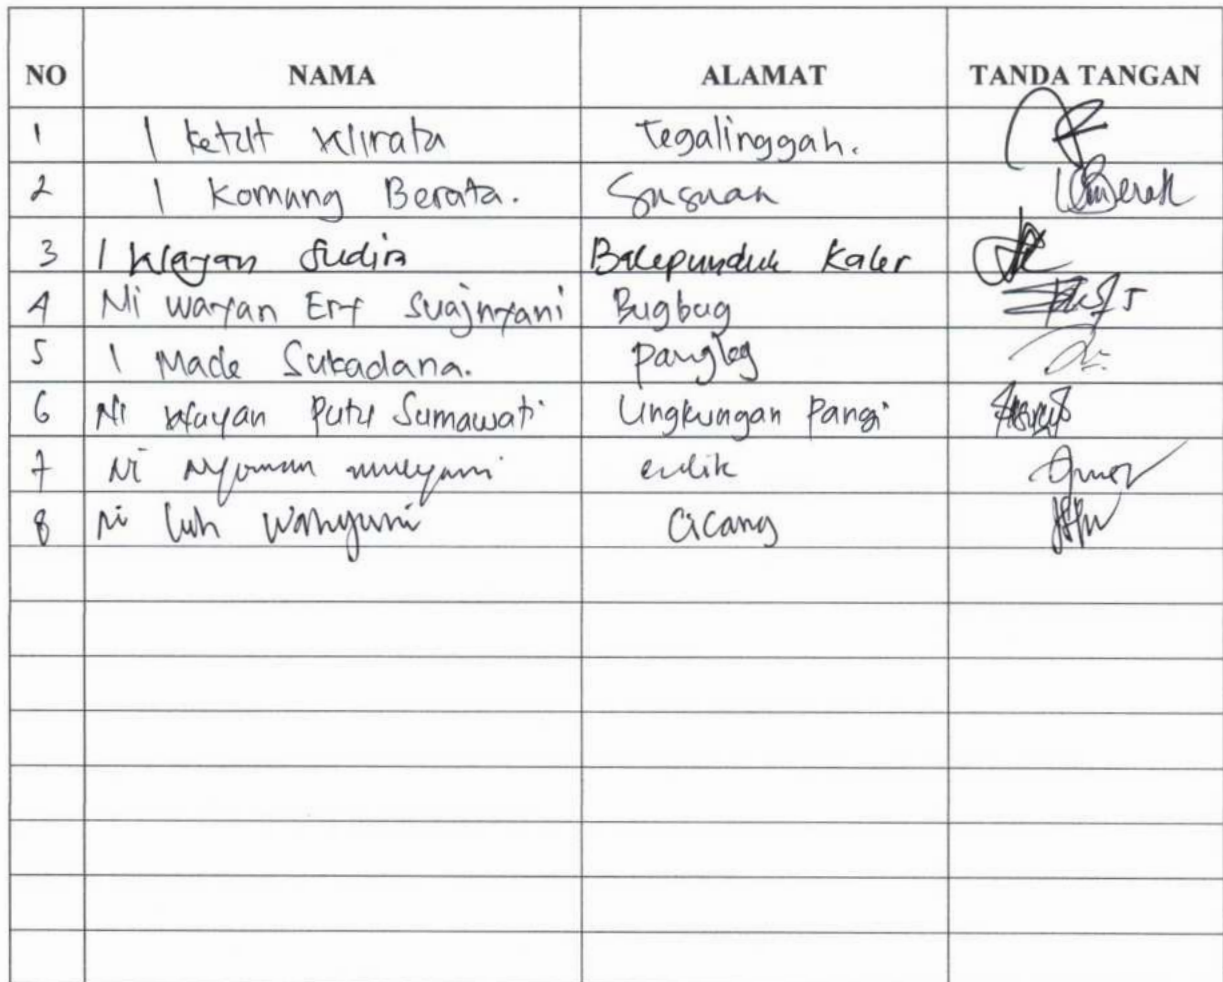 NO NAMA ALAMAT TANDA TANGAN
1 I Ketut Wirata Tegalinggah.
2 I Komang Berata. Susuan
3 I Wayan Sudira Balepunduk Kaler
4 Ni Wayan Ery Suajnyani Bugbug
5 I Made Sukadana. Pangleg
6 Ni Wayan Putu Sumawati Lingkungan Pangi
7 Ni Nyoman Mulyani
8 Ni Luh Wahyuni Cicang